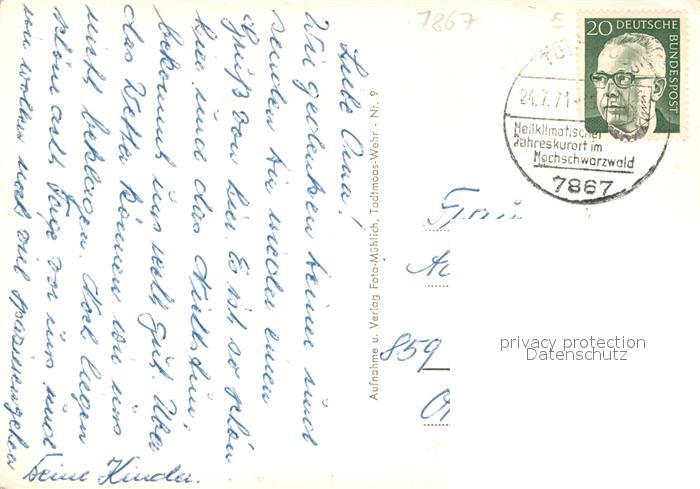 Liebe Oma!
Wir gedenken deiner und
senden dir wieder einen
Gruß von hier. Es ist so schön
hier und das Nichtstun
bekommt uns well gut. Über
das Wetter können wir uns
nicht beklagen. Noch liegen
schön acht Tage vor uns und
wir wollen noch viel spazierengehen
Deine Kinder.
Aufnahme u. Verlag Foto-Mühlich, Todtmoos-Wehr - Nr. 9
7867
20 DEUTSCHE BUNDESPOST
24.7.71
Heilklimatischer
Jahreskurort im
Hochschwarzwald
7867
Frau
859
privacy protection
Datenschutz